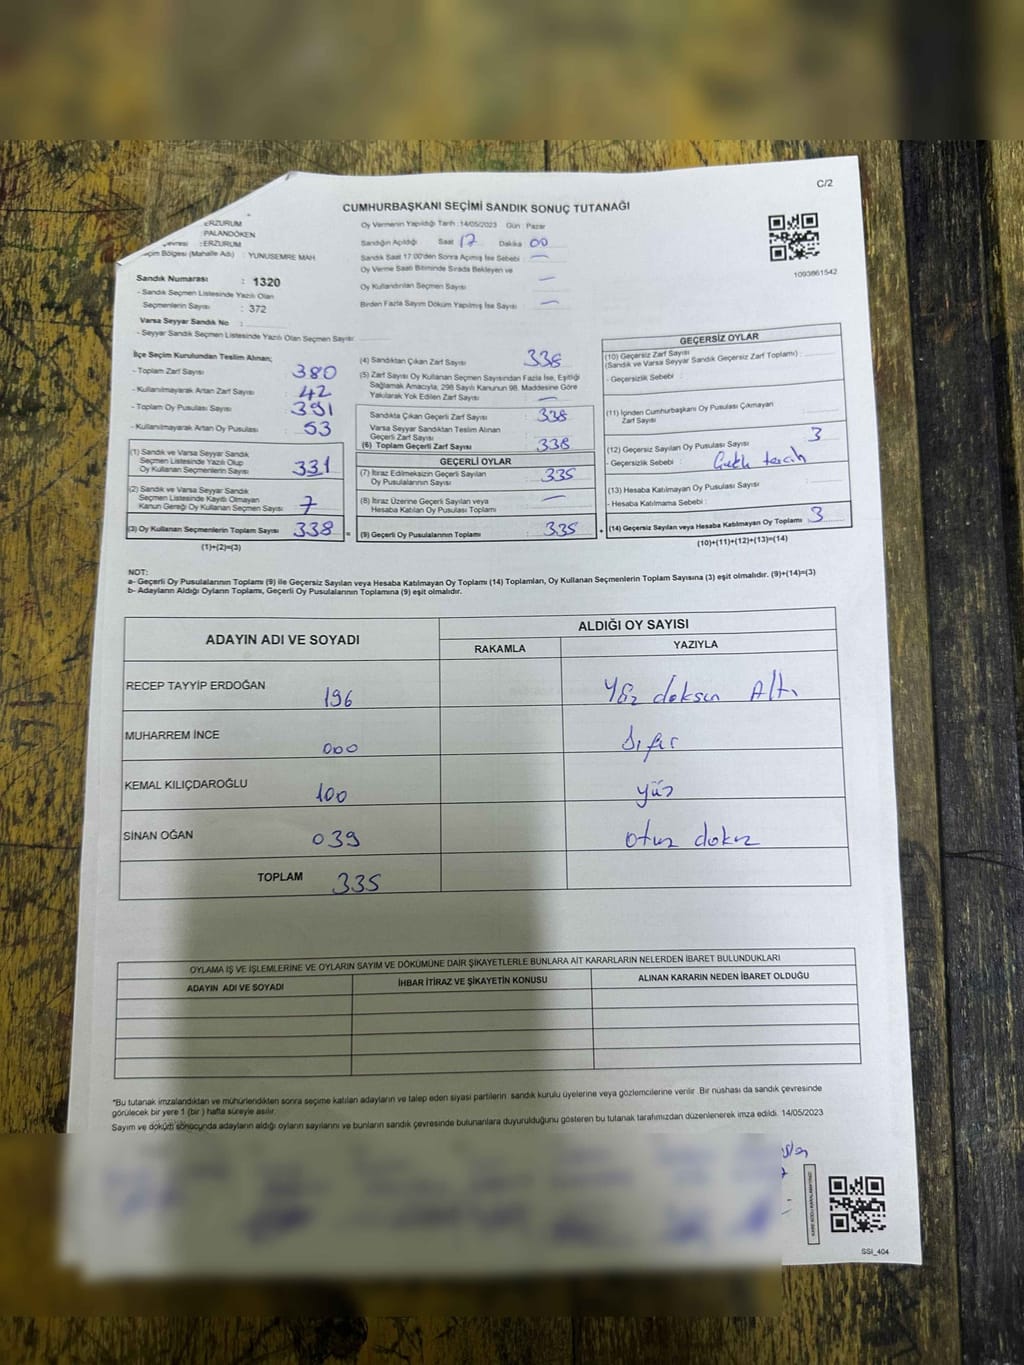 C/2
CUMHURBAŞKANI SEÇİMİ SANDIK SONUÇ TUTANAĞI
ERZURUM
PALANDÖKEN
: ERZURUM
Bölgesi (Mahalle Adı) : YUNUSEMRE MAH.
Sandık Numarası : 1320
- Sandık Seçmen Listesinde Yazılı Olan
Seçmenlerin Sayısı : 372
Varsa Seyyar Sandık No :
- Seyyar Sandık Seçmen Listesinde Yazılı Olan Seçmen Sayısı :
Oy Vermenin Yapıldığı Tarih : 14/05/2023 Gün : Pazar
Sandığın Açıldığı Saat 17 Dakika 00
Sandık Saat 17.00'den Sonra Açılmış İse Sebebi : —
Oy Verme Saati Bitiminde Sırada Bekleyen ve
Oy Kullandırılan Seçmen Sayısı : —
Birden Fazla Sayım Döküm Yapılmış İse Sayısı : —
1093861542
İlçe Seçim Kurulundan Teslim Alınan;
- Toplam Zarf Sayısı : 380
- Kullanılmayarak Artan Zarf Sayısı : 42
- Toplam Oy Pusulası Sayısı : 391
- Kullanılmayarak Artan Oy Pusulası : 53
(1) Sandık ve Varsa Seyyar Sandık
Seçmen Listesinde Yazılı Olup
Oy Kullanan Seçmenlerin Sayısı : 331
(2) Sandık ve Varsa Seyyar Sandık
Seçmen Listesinde Kayıtlı Olmayan
Kanun Gereği Oy Kullanan Seçmen Sayısı : 7
(3) Oy Kullanan Seçmenlerin Toplam Sayısı : 338
(1)+(2)=(3)
(4) Sandıktan Çıkan Zarf Sayısı : 338
(5) Zarf Sayısı Oy Kullanan Seçmen Sayısından Fazla İse, Eşitliği
Sağlamak Amacıyla, 298 Sayılı Kanunun 98. Maddesine Göre
Yakılarak Yok Edilen Zarf Sayısı : —
Sandıkta Çıkan Geçerli Zarf Sayısı : 338
Varsa Seyyar Sandıktan Teslim Alınan
Geçerli Zarf Sayısı
(6) Toplam Geçerli Zarf Sayısı : 338
GEÇERLİ OYLAR
(7) İtiraz Edilmeksizin Geçerli Sayılan
Oy Pusulalarının Sayısı : 335
(8) İtiraz Üzerine Geçerli Sayılan veya
Hesaba Katılan Oy Pusulası Toplamı : —
= (9) Geçerli Oy Pusulalarının Toplamı : 335 +
GEÇERSİZ OYLAR
(10) Geçersiz Zarf Sayısı
(Sandık ve Varsa Seyyar Sandık Geçersiz Zarf Toplamı) :
- Geçersizlik Sebebi :
(11) İçinden Cumhurbaşkanı Oy Pusulası Çıkmayan
Zarf Sayısı :
(12) Geçersiz Sayılan Oy Pusulası Sayısı : 3
- Geçersizlik Sebebi : tercih
(13) Hesaba Katılmayan Oy Pusulası Sayısı :
- Hesaba Katılmama Sebebi :
(14) Geçersiz Sayılan veya Hesaba Katılmayan Oy Toplamı : 3
(10)+(11)+(12)+(13)=(14)
NOT:
a- Geçerli Oy Pusulalarının Toplamı (9) ile Geçersiz Sayılan veya Hesaba Katılmayan Oy Toplamı (14) Toplamları, Oy Kullanan Seçmenlerin Toplam Sayısına (3) eşit olmalıdır. (9)+(14)=(3)
b- Adayların Aldığı Oyların Toplamı, Geçerli Oy Pusulalarının Toplamına (9) eşit olmalıdır.
ADAYIN ADI VE SOYADI
ALDIĞI OY SAYISI
RAKAMLA
YAZIYLA
RECEP TAYYİP ERDOĞAN 196 Yüz doksan Altı
MUHARREM İNCE 000 Sıfır
KEMAL KILIÇDAROĞLU 100 yüz
SİNAN OĞAN 039 otuz dokuz
TOPLAM 335
OYLAMA İŞ VE İŞLEMLERİNE VE OYLARIN SAYIM VE DÖKÜMÜNE DAİR ŞİKAYETLERLE BUNLARA AİT KARARLARIN NELERDEN İBARET BULUNDUKLARI
ADAYIN ADI VE SOYADI
İHBAR İTİRAZ VE ŞİKAYETİN KONUSU
ALINAN KARARIN NEDEN İBARET OLDUĞU
*Bu tutanak imzalandıktan ve mühürlendikten sonra seçime katılan adayların ve talep eden siyasi partilerin sandık kurulu üyelerine veya gözlemcilerine verilir. Bir nüshası da sandık çevresinde
görülecek bir yere 1 (bir) hafta süreyle asılır.
Sayım ve döküm sonucunda adayların aldığı oyların sayılarını ve bunların sandık çevresinde bulunanlara duyurulduğunu gösteren bu tutanak tarafımızdan düzenlenerek imza edildi. 14/05/2023
SSİ_404